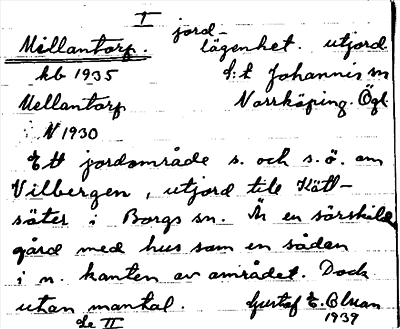 I
jord-
Mellantorp. lägenhet. utjord
kb 1935 S:t Johannis sn
Mellantorp Norrköping. Ögl.
N 1930
Ett jordområde s. och s.ö. om
Vilbergen, utjord till Kätt-
säter i Borgs sn. Är en särskild
gård med hus som en sådan
i n. kanten av området. Dock
utan mantal. Gustaf E. Blman
Se II 1939